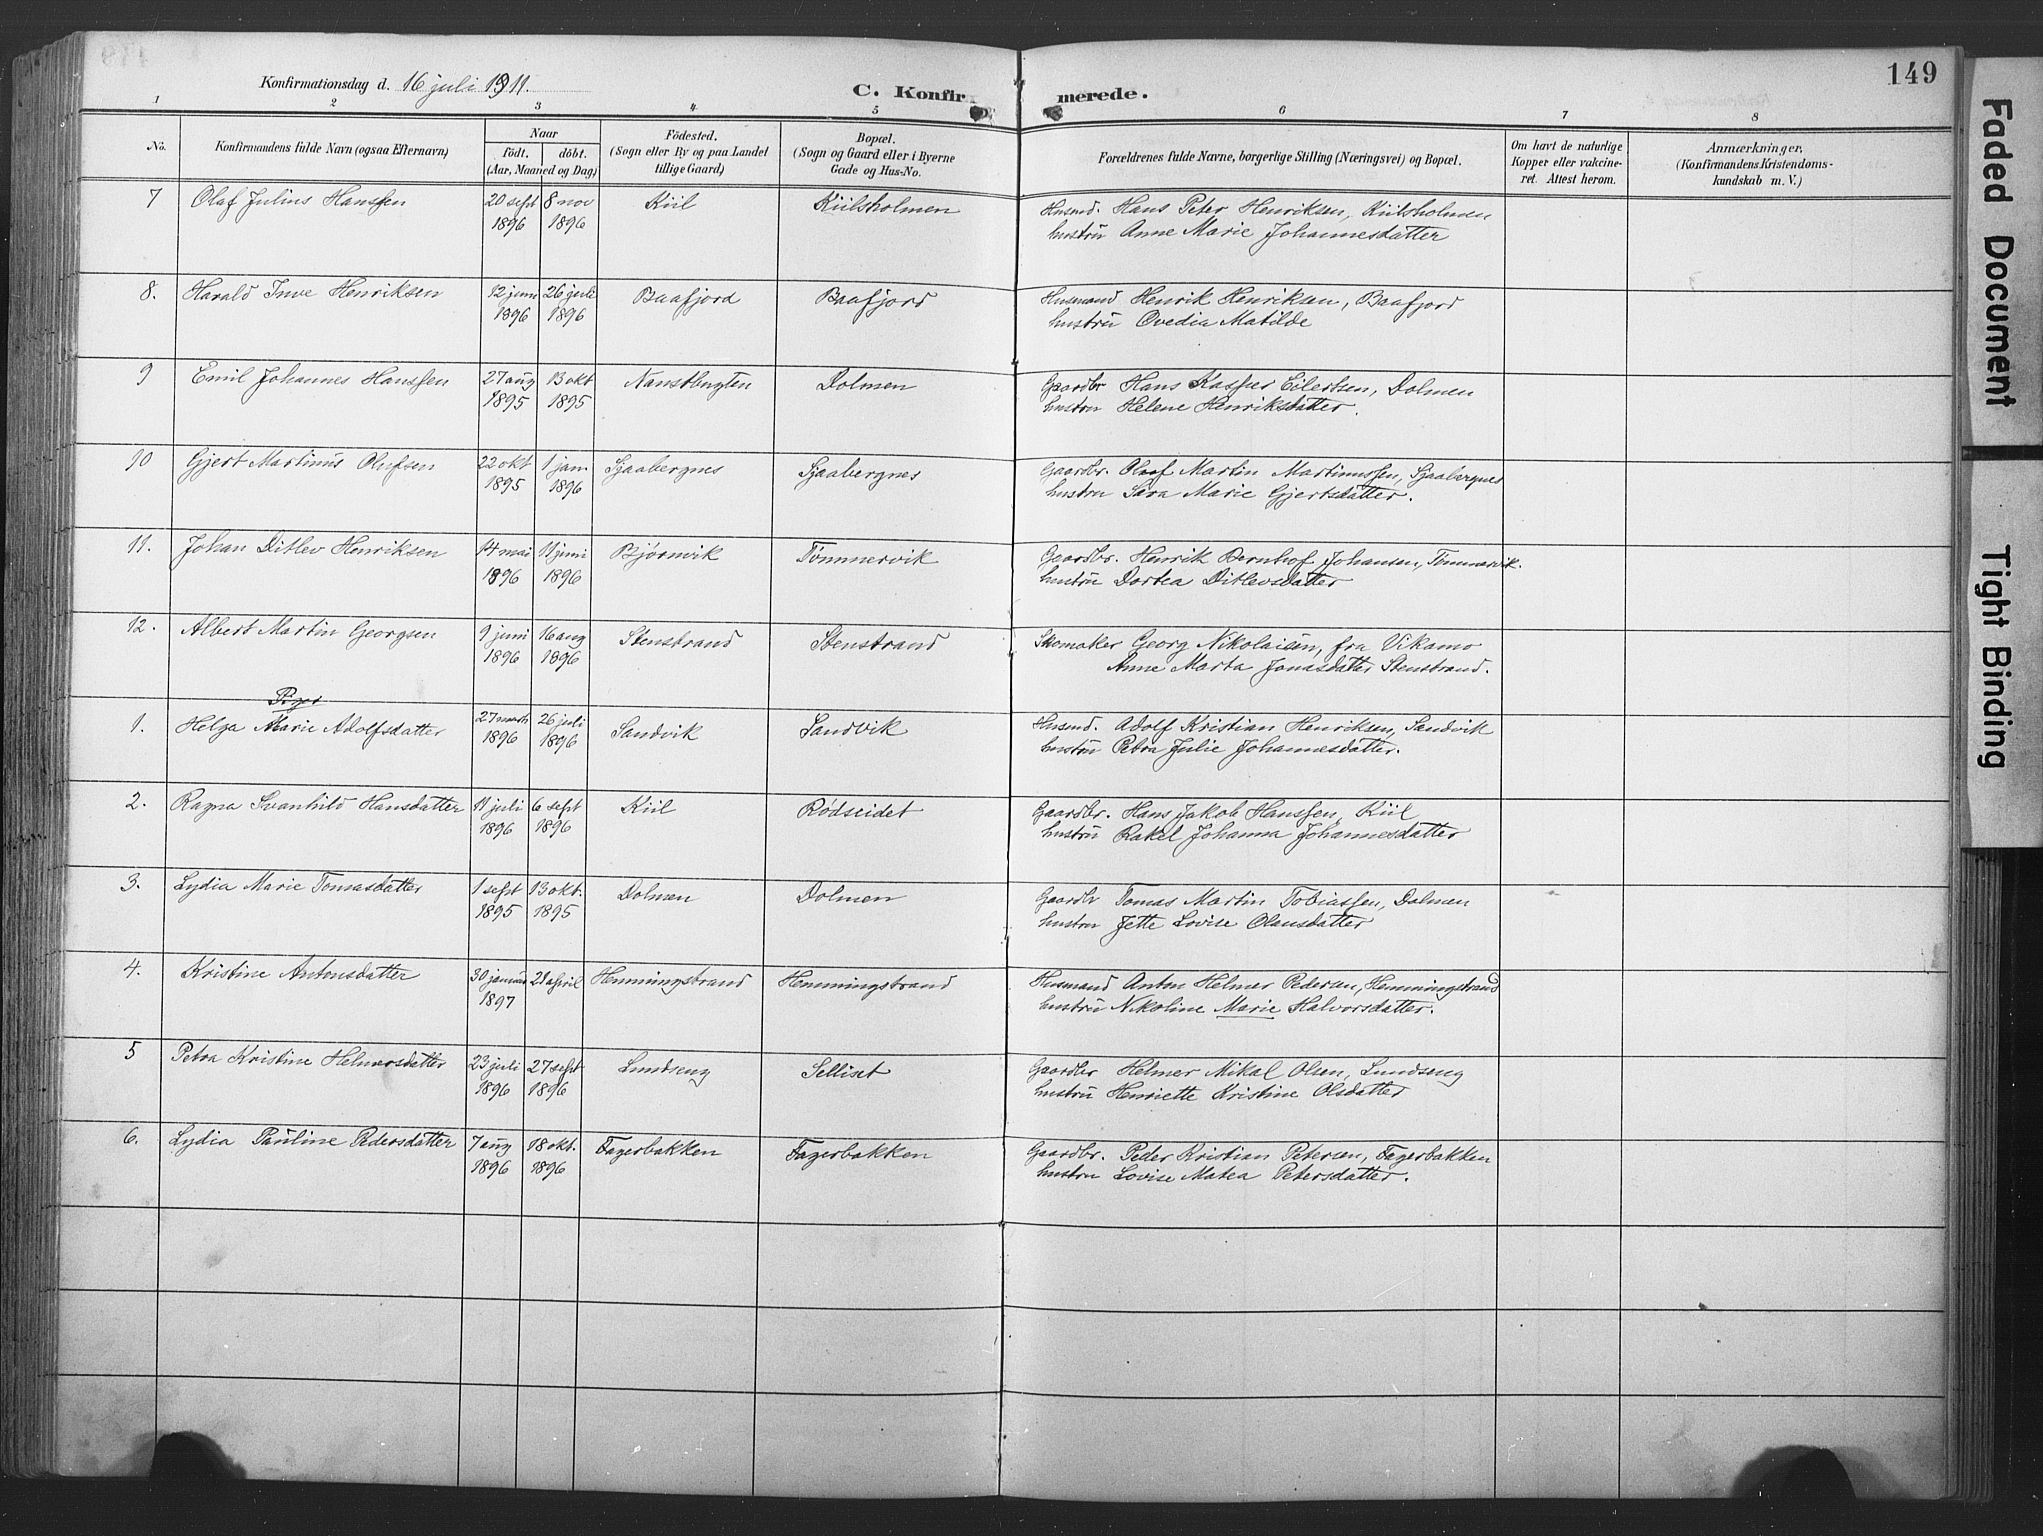 149
Konfirmationsdag d. 16 juli 1911.
C. Konfirmerede.
1 2 3 4 5 6 7 8
No.
Konfirmandens fulde Navn (ogsaa Efternavn)
Naar
födt. döbt.
(Aar, Maaned og Dag)
Födested.
(Sogn eller By og paa Landet
tillige Gaard)
Bopæl.
(Sogn og Gaard eller i Byerne
Gade og Hus-No.
Forældrenes fulde Navne, borgerlige Stilling (Næringsvei) og Bopæl.
Om havt de naturlige
Kopper eller vakcine-
ret. Attest herom.
Anmærkninger,
(Konfirmandens Kristendoms-
kundskab m. V.)
7 Olaf Julius Hanssen 20 sept 8 nov Kiil Kiilsholmen Husmd. Hans Peter Henriksen, Kiilsholmen
1896 1896 hustru Anne Marie Johannesdatter
8. Harald Inve Henriksen 12 juni 26 juli Baafjord Baafjord Husmand Henrik Henriksen, Baafjord
1896 1896 hustru Ovedia Matilde
9 Emil Johannes Hanssen 27 aug 13 okt Nanstbugten Dolmen Gaardbr Hans Kasper Eilertsen, Dolmen
1895 1895 hustru Helene Henriksdatter.
10 Gjert Martinus Olufsen 22 okt 1 jan. Sjaabergnes Sjaabergnes Gaardbr. Oluf Martin Martinussen, Sjaabergnes
1895 1896 hustru Sara Marie Gjertsdatter.
11. Johan Ditlev Henriksen 14 mai 11 juni Bjørnvik Tømmervik Gaardbr. Henrik Bernhof Johansen, Tömmervik.
1896 1896 hustru Dortea Ditlevsdatter
12. Albert Martin Georgsen 9 juni 16 aug Stenstrand Stenstrand Skomaker Georg Nikolaisen, fra Vikamo
1896 1896 Anne Marta Jonasdatter Stenstrand.
Piger
1. Helga Marie Adolfsdatter 27 marts 26 juli Sandvik Sandvik Husmd. Adolf Kristian Henriksen, Sandvik
1896 1896 hustru Petra Julie Johannesdatter.
2. Ragna Svanhild Hansdatter 11 juli 6 sept Kiil Rødseidet Gaardbr. Hans Jakob Hanssen, Kiil
1896 1896 hustru Rakel Johanna Johannesdatter
3. Lydia Marie Tomasdatter 1 sept 13 okt. Dolmen Dolmen Gaardbr Tomas Martin Tobiassen, Dolmen
1895 1895 hustru Jette Lovise Olausdatter
4. Kristine Antonsdatter 30 januar 21 april Hemmingstrand Hemmingstrand Husmand Anton Helmer Pedersen, Hemmingstrand
1897 hustru Nikoline Marie Halvorsdatter.
5 Petra Kristine Helmersdatter 23 juli 27 sept Lundseng Selliset Gaardbr Helmer Mikal Olsen, Lundseng
1896 1896 hustru Henriette Kristine Olsdatter
6. Lydia Pauline Pedersdatter 7 aug 18 okt. Fagerbakken Fagerbakken Gaardbr. Peder Kristian Petersen, Fagerbakken
1896 1896 hustru Lovise Matea Petersdatter.
Faded Document
Tight Binding